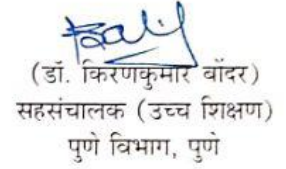 (डॉ. किरणकुमार बोंदर)
सहसंचालक (उच्च शिक्षण)
पुणे विभाग, पुणे